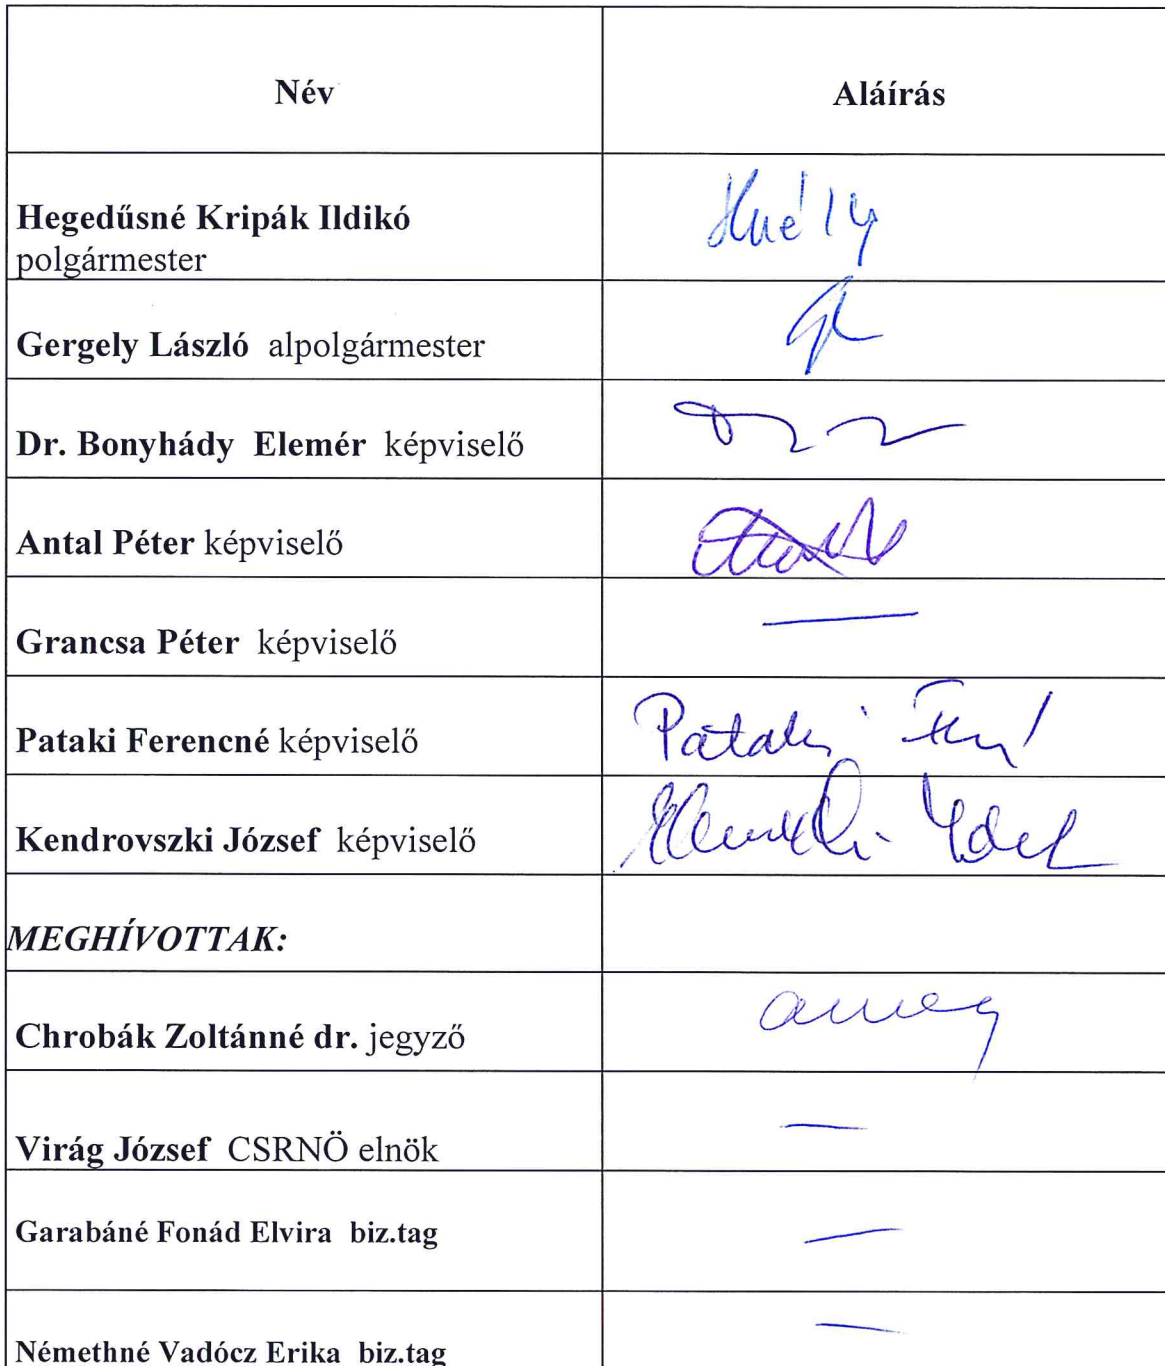 Név
Aláírás
Hegedűsné Kripák Ildikó
polgármester
Gergely László alpolgármester
Dr. Bonyhády Elemér képviselő
Antal Péter képviselő
Grancsa Péter képviselő
—
Pataki Ferencné képviselő
Pataki
Kendrovszki József képviselő
MEGHÍVOTTAK:
Chrobák Zoltánné dr. jegyző
Virág József CSRNÖ elnök
—
Garabáné Fonád Elvira biz.tag
—
Némethné Vadócz Erika biz.tag
—